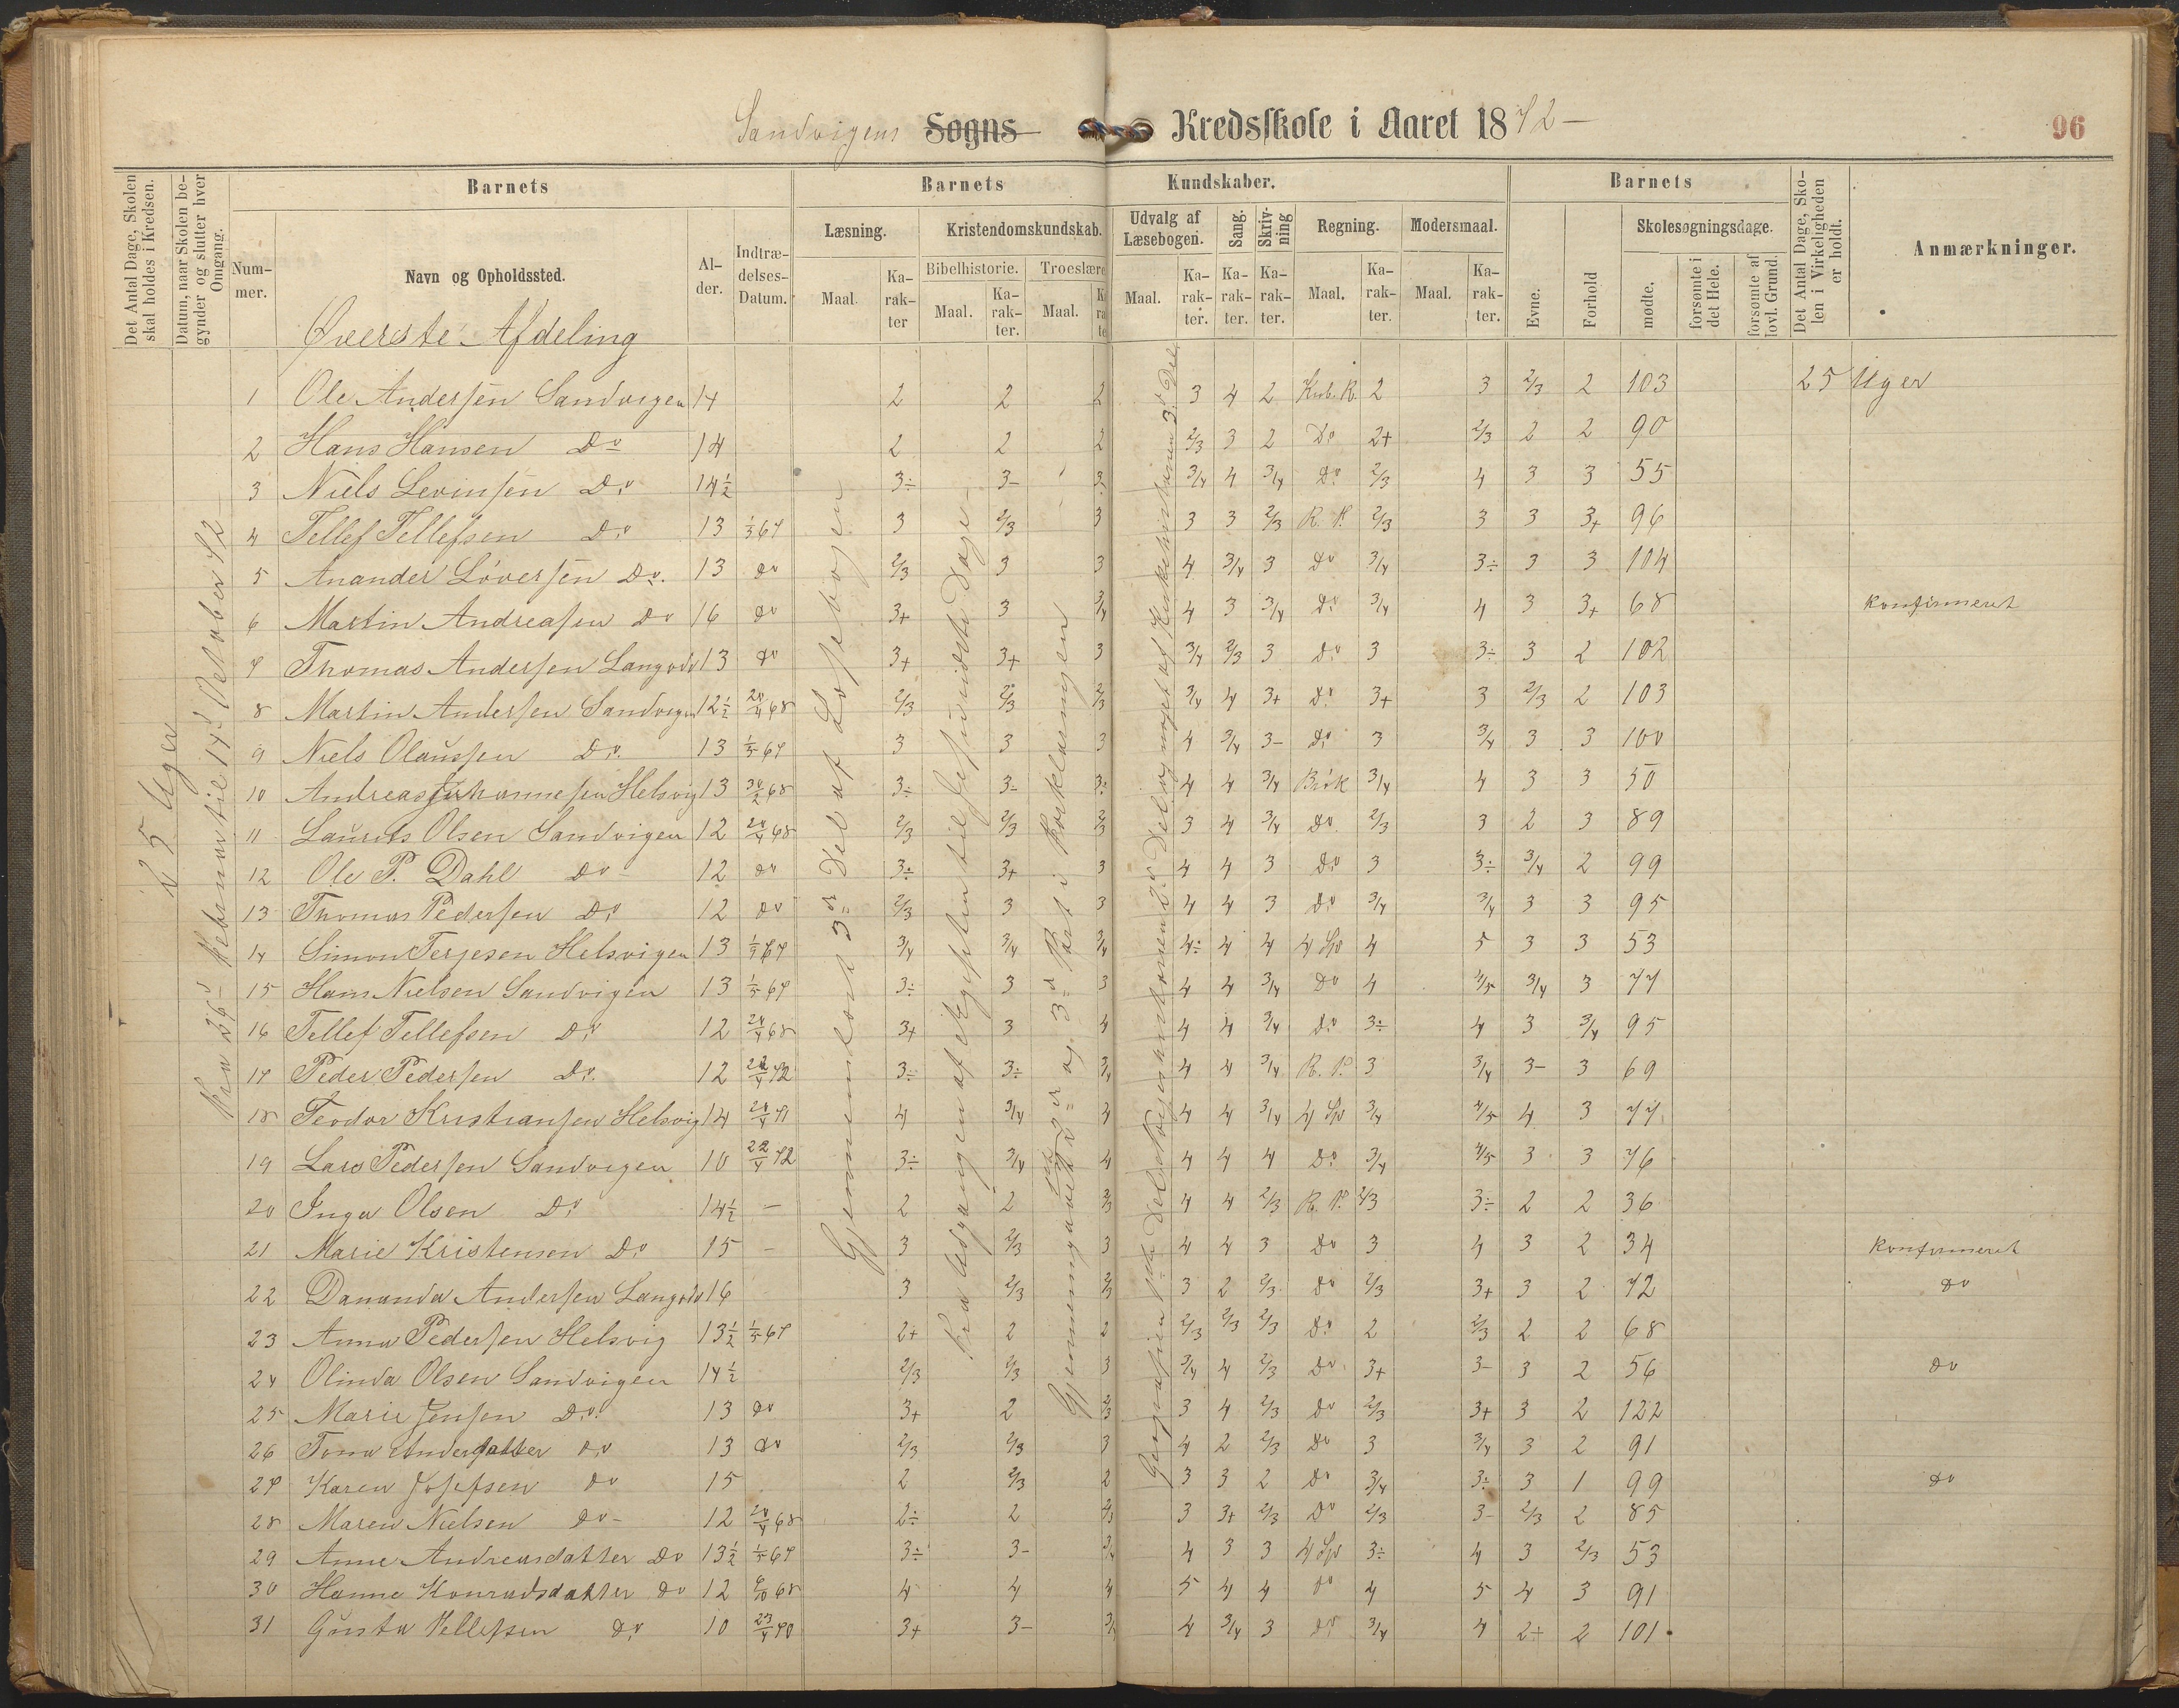 Sandvigens Sogns Kredsskole i Aaret 1872 —
96
Det Antal Dage, Skolen skal holdes i Kredsen.
Datum, naar Skolen begynder og slutter hver Omgang.
Barnets
Nummer.
Navn og Opholdssted.
Alder.
Indtrædelses-Datum.
Barnets Kundskaber.
Læsning.
Maal.
Karakter
Kristendomskundskab.
Bibelhistorie.
Maal.
Karakter.
Troeslære
Maal.
Udvalg af Læsebogen.
Maal.
Karakter.
Sang.
Karakter.
Skrivning
Karakter.
Regning.
Maal.
Karakter.
Modersmaal.
Maal.
Karakter.
Barnets
Evne.
Forhold
Skolesøgningsdage.
mødte.
forsømte i det Hele.
forsømte af lovl. Grund.
Det Antal Dage, Skolen i Virkeligheden er holdt.
Anmærkninger.
Øverste Afdeling
25 Uger
Fra 26 Februar til 14 Oktober 72
Gjennemlæst 3 Del af Læsebogen
Fra Udgangen af Ægypten til Jesu sidste Dage
Gjennemgaaet 2 og 3 Part i Forklaringen
1 Ole Andersen Sandvigen 14 2 2 2 3 4 2 Kub. R. 2 3 2/3 2 103 25 Uger
2 Hans Hansen Do 14 2 2 2 2/3 3 2 Do 2+ 2/3 2 2 90
3 Niels Levinsen Do 14½ 3÷ 3- 3 3/4 4 3/4 Do 2/3 4 3 3 55
4 Tellef Tellefsen Do 13 1/3 67 3 2/3 3 3 3 2/3 R. P. 2/3 3 3 3+ 96
5 Anander Löversen Do. 13 do 2/3 3 3 4 3/4 3 Do 3/4 3÷ 3 3 104
6 Martin Andreasen Do 16 do 3+ 3 3/4 4 3 3/4 Do 3/4 4 3 3+ 68 Konfirmeret
7 Thomas Andersen Langodd 13 do 3+ 3+ 3 3/4 2/3 3 Do 3 3÷ 3 2 102
8 Martin Andersen Sandvigen 12½ 20/4 68 2/3 2/3 2/3 3/4 4 3+ Do 3+ 3 2/3 2 103
9 Niels Olaussen Do. 13 1/5 67 3 3 3 4 3/4 3- Do 3 3/4 3 3 100
10 Andreas Johannesen Helsvig 13 30/2 68 3÷ 3÷ 3÷ 4 4 3/4 Brök 3/4 4 3 3 50
11 Laurits Olsen Sandvigen 12 20/4 68 2/3 2/3 2/3 3 4 3/4 Do 2/3 3 2 3 89
12 Ole P. Dahl do 12 do 3÷ 3+ 3 4 4 3 Do 3 3÷ 3/4 2 99
13 Thomas Pedersen Do 12 do 2/3 3 3 4 4 3 Do 3/4 3/4 3 3 95
14 Simon Terjesen Helsvigen 13 1/5 67 3/4 3/4 3/4 4÷ 4 4 4 Sp 4 5 3 3 53
15 Hans Nielsen Sandvigen 13 1/5 67 3÷ 3 3 4 4 3/4 Do 4 4/5 3/4 3 77
16 Tellef Tellefsen Do 12 20/4 68 3+ 3 4 4 4 3/4 Do 3÷ 4 3 3/4 95
17 Peder Pedersen Do. 12 22/4 72 3÷ 3÷ 3/4 4 4 3/4 R. P. 3 3/4 3- 3 69
18 Teodor Kristiansen Helsvig 14 20/4 71 4 3/4 4 4 4 3/4 4 Sp 3/4 4/5 4 3 77
19 Lars Pedersen Sandvigen 10 22/4 72 3÷ 3/4 4 4 4 4 Do 3/4 4/5 3 3 76
20 Inga Olsen Do 14½ — 2 2 2/3 4 4 2/3 R. P. 2/3 3÷ 2 2 36
21 Marie Kristensen Do 15 — 3 2/3 3 4 4 3 Do 3 4 3 2 34 Konfirmeret
22 Dananda Andersen Langodd 16 3 2/3 2/3 3 2 2/3 do 2/3 3+ 3 2 72 do
23 Anna Pedersen Helsvig 13½ 1/5 67 2+ 2 2 2/3 2/3 2/3 Do 2 2/3 2 2 68
24 Olinda Olsen Sandvigen 14½ 2/3 2/3 3 3/4 4 2/3 Do 3+ 3- 3 2 56 do
25 Marie Jensen Do. 13 do 3+ 2 2/3 3 4 2/3 Do 2/3 3+ 3 2 122
26 Tona Andersdatter do 13 do 2/3 2/3 3 4 2 2/3 Do 3 3/4 3 2 91
27 Karen Josefsen do 15 2 2/3 2 3 3 2 Do 3/4 3÷ 3 1 99 do
28 Maren Nielsen do 12 20/4 68 2÷ 2 2/3 3 3+ 2/3 Do 2/3 3- 2/3 2 85
29 Anne Andreasdatter Do 13½ 1/5 67 3÷ 3- 3/4 4 3 3 4 Sp 3÷ 4 3 2/3 53
30 Hanne Konradsdatter do 12 9/10 68 4 4 4 5 4 4 do 4 5 4 3 91
31 Gusta Tellefsen do 10 23/4 70 3+ 3- 3/4 4 3/4 3 Do 3/4 4 2÷ 2 101